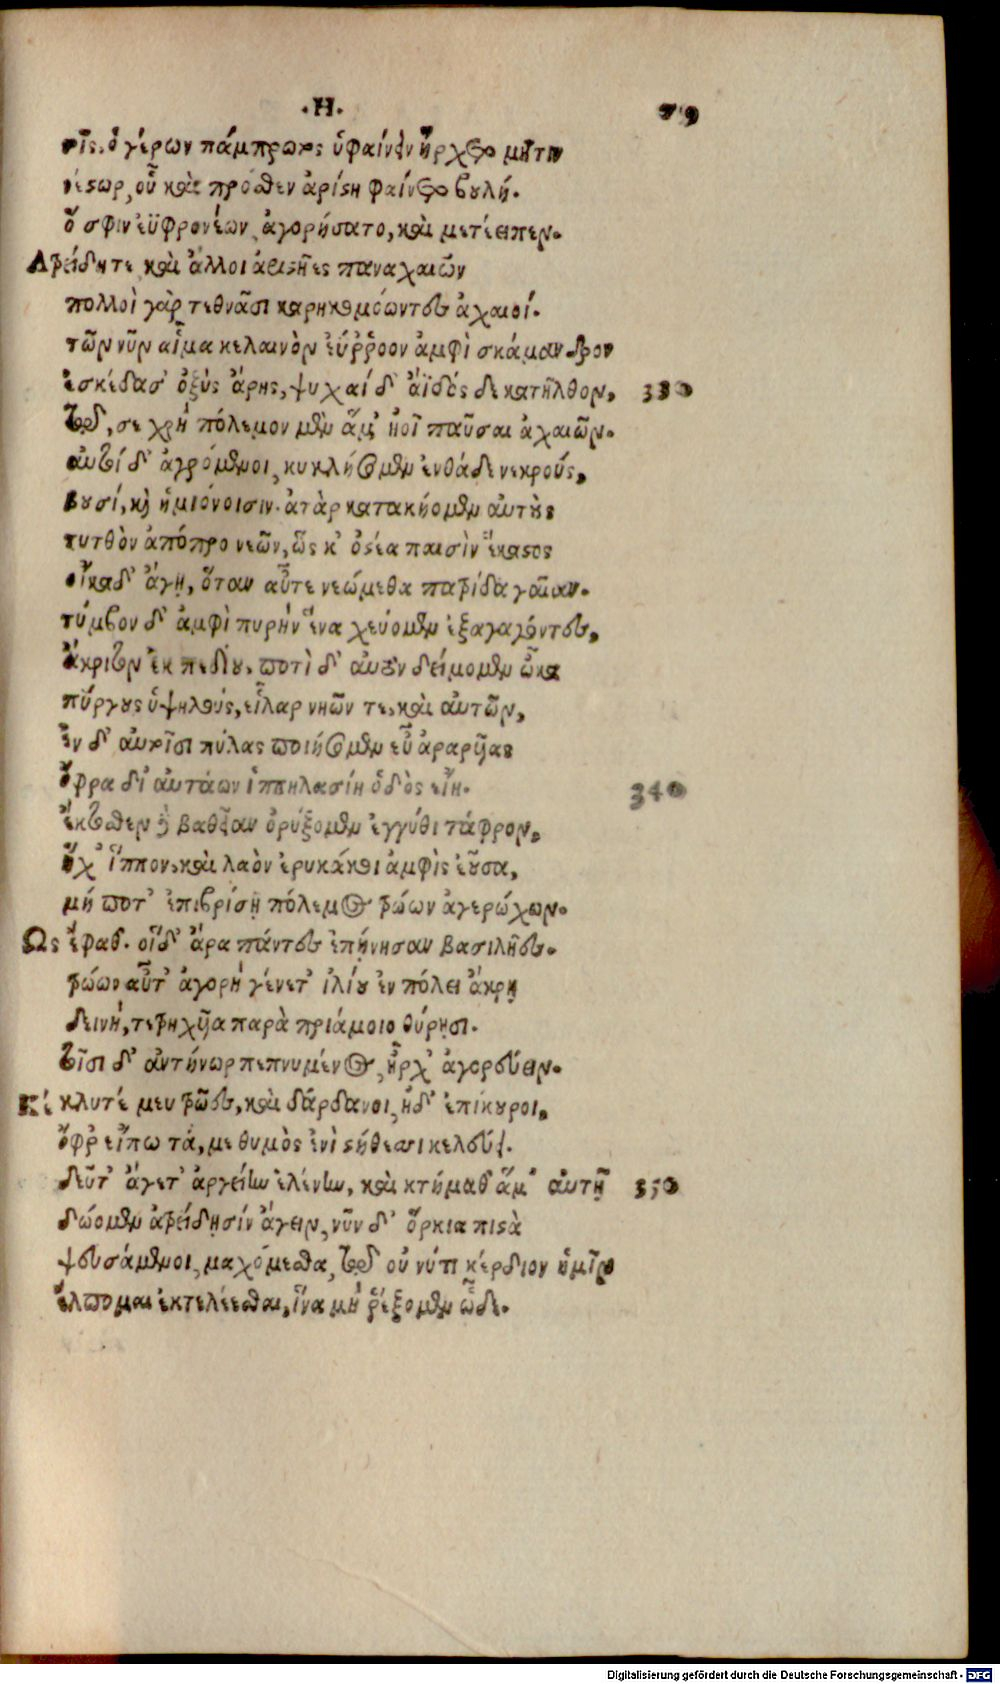 ·Η· 79
τοῖς. ὁ γέρων πάμπρωτος ὑφαίνειν ἤρχετο μῆτιν
νέστωρ, οὗ καὶ πρόσθεν ἀρίστη φαίνετο βουλή.
ὅ σφιν ἐϋφρονέων ἀγορήσατο, καὶ μετέειπεν.
Ατρείδη τε καὶ ἄλλοι ἀριστῆες παναχαιῶν
πολλοὶ γὰρ τεθνᾶσι καρηκομόωντες ἀχαιοί.
τῶν νῦν αἷμα κελαινὸν ἐΰρροον ἀμφὶ σκάμανδρον
ἐσκέδασ' ὀξὺς ἄρης, ψυχαὶ δ' ἄϊδόσδε κατῆλθον, 330
τῷ, σε χρὴ πόλεμον μὲν ἅμ' ἠοῖ παῦσαι ἀχαιῶν.
αὐτοὶ δ' ἀγρόμενοι, κυκλήσομεν ἐνθάδε νεκροὺς,
βουσί, καὶ ἡμιόνοισιν. ἀτὰρ κατακήομεν αὐτοὺς
τυτθὸν ἀπόπρο νεῶν, ὥς κ' ὀστέα παισὶν ἕκαστος
οἴκαδ' ἄγῃ, ὅταν αὖτε νεώμεθα πατρίδα γαῖαν.
τύμβον δ' ἀμφὶ πυρὴν ἕνα χεύομεν ἐξαγαγόντες,
ἄκριτον ἐκ πεδίου, ποτὶ δ' αὐτὸν δείμομεν ὦκα
πύργους ὑψηλοὺς, εἶλαρ νηῶν τε, καὶ αὐτῶν,
ἐν δ' αὐτοῖσι πύλας ποιήσομεν εὖ ἀραρυίας
ὄφρα δι' αὐτάων ἱππηλασίη ὁδὸς εἴη. 340
ἔκτοσθεν δὲ βαθεῖαν ὀρύξομεν ἐγγύθι τάφρον,
ἥ χ' ἵππον, καὶ λαὸν ἐρυκάκοι ἀμφὶς ἐοῦσα,
μή ποτ' ἐπιβρίσῃ πόλεμος τρώων ἀγερώχων.
Ως ἔφαθ'. οἱ δ' ἄρα πάντες ἐπῄνησαν βασιλῆες.
τρώων αὖτ' ἀγορὴ γένετ' ἰλίου ἐν πόλει ἄκρῃ
δεινή, τετρηχυῖα παρὰ πριάμοιο θύρῃσι.
τοῖσι δ' ἀντήνωρ πεπνυμένος ἦρχ' ἀγορεύειν.
Κέκλυτέ μευ τρῶες, καὶ δάρδανοι, ἠδ' ἐπίκουροι,
ὄφρ' εἴπω τά, με θυμὸς ἐνὶ στήθεσσι κελεύει.
δεῦτ' ἄγετ' ἀργείην ἑλένην, καὶ κτήμαθ' ἅμ' αὐτῇ 350
δώομεν ἀτρείδῃσιν ἄγειν, νῦν δ' ὅρκια πιστὰ
ψευσάμενοι, μαχόμεσθα, τῷ οὔ νύ τι κέρδιον ἡμῖν
ἔλπομαι ἐκτελέεσθαι, ἵνα μὴ ῥέξομεν ὧδε.
Digitalisierung gefördert durch die Deutsche Forschungsgemeinschaft - DFG